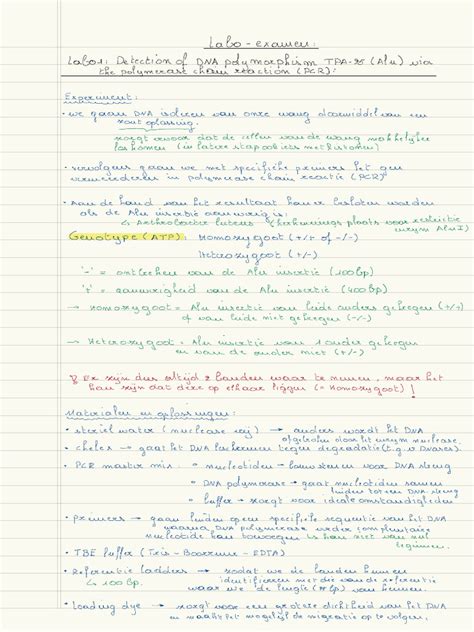 Labo-examen:
Labo 1: Detection of DNA polymorphism TPA-25 (Alu) via
the polymerase chain reaction (PCR):
Experiment:
• we gaan DNA isoleren van onze wang doormiddel van een
zout oplossing.
↳ zorgt ervoor dat de cellen van de wang makkelijker
loskomen (in latere stap ook
• vervolgens gaan we met specifieke primers het gen
vermeerderen in polymerase chain reactie (PCR)
• Aan de hand van het resultaat kan er besloten worden
als de Alu insertie aanwezig is:
↳ Arthrobacter luteus (herkennings plaats voor restrictie
enzym Alu I)
Genotype (ATP): Homozygoot (+/+ of -/-)
Heterozygoot (+/-)
'-' = ontbreken van de Alu insertie (100bp)
'+' = aanwezigheid van de Alu insertie (400bp)
→ Homozygoot = Alu insertie van beide ouders gekregen (+/+)
of van beide niet gekregen (-/-)
→ Heterozygoot = Alu insertie van 1 ouder gekregen
en van de ander niet (+/-)
Er zijn dus altijd 2 banden waar te nemen, maar het
kan zijn dat deze op elkaar liggen (= Homozygoot)!
Materialen en oplossingen:
• steriel water (nuclease vrij) → anders wordt het DNA
afgebroken door het enzym nuclease.
• chelex → gaat het DNA beschermen tegen degradatie (t.g.v DNases).
• PCR master mix = nucleotiden = bouwstenen voor DNA streng
= DNA polymerase → gaat nucleotiden samen
binden tot een DNA streng
= buffer → zorgt voor ideale omstandigheden
• primers → gaan binden op een specifieke sequentie van het DNA
waarna DNA polymerase verder complementaire
nucleotide kan toevoegen is kan niet van nul
beginnen.
• TBE buffer (Tris - Boorzuur - EDTA)
• Referentie ladders → zodat we de banden kunnen
↳ 100 bp. identificeren met die van de referentie
waar we de lengte (bp) van kennen.
• Loading dye → zorgt een grotere dichtheid van het DNA
en maakt het mogelijk de migratie op te volgen.